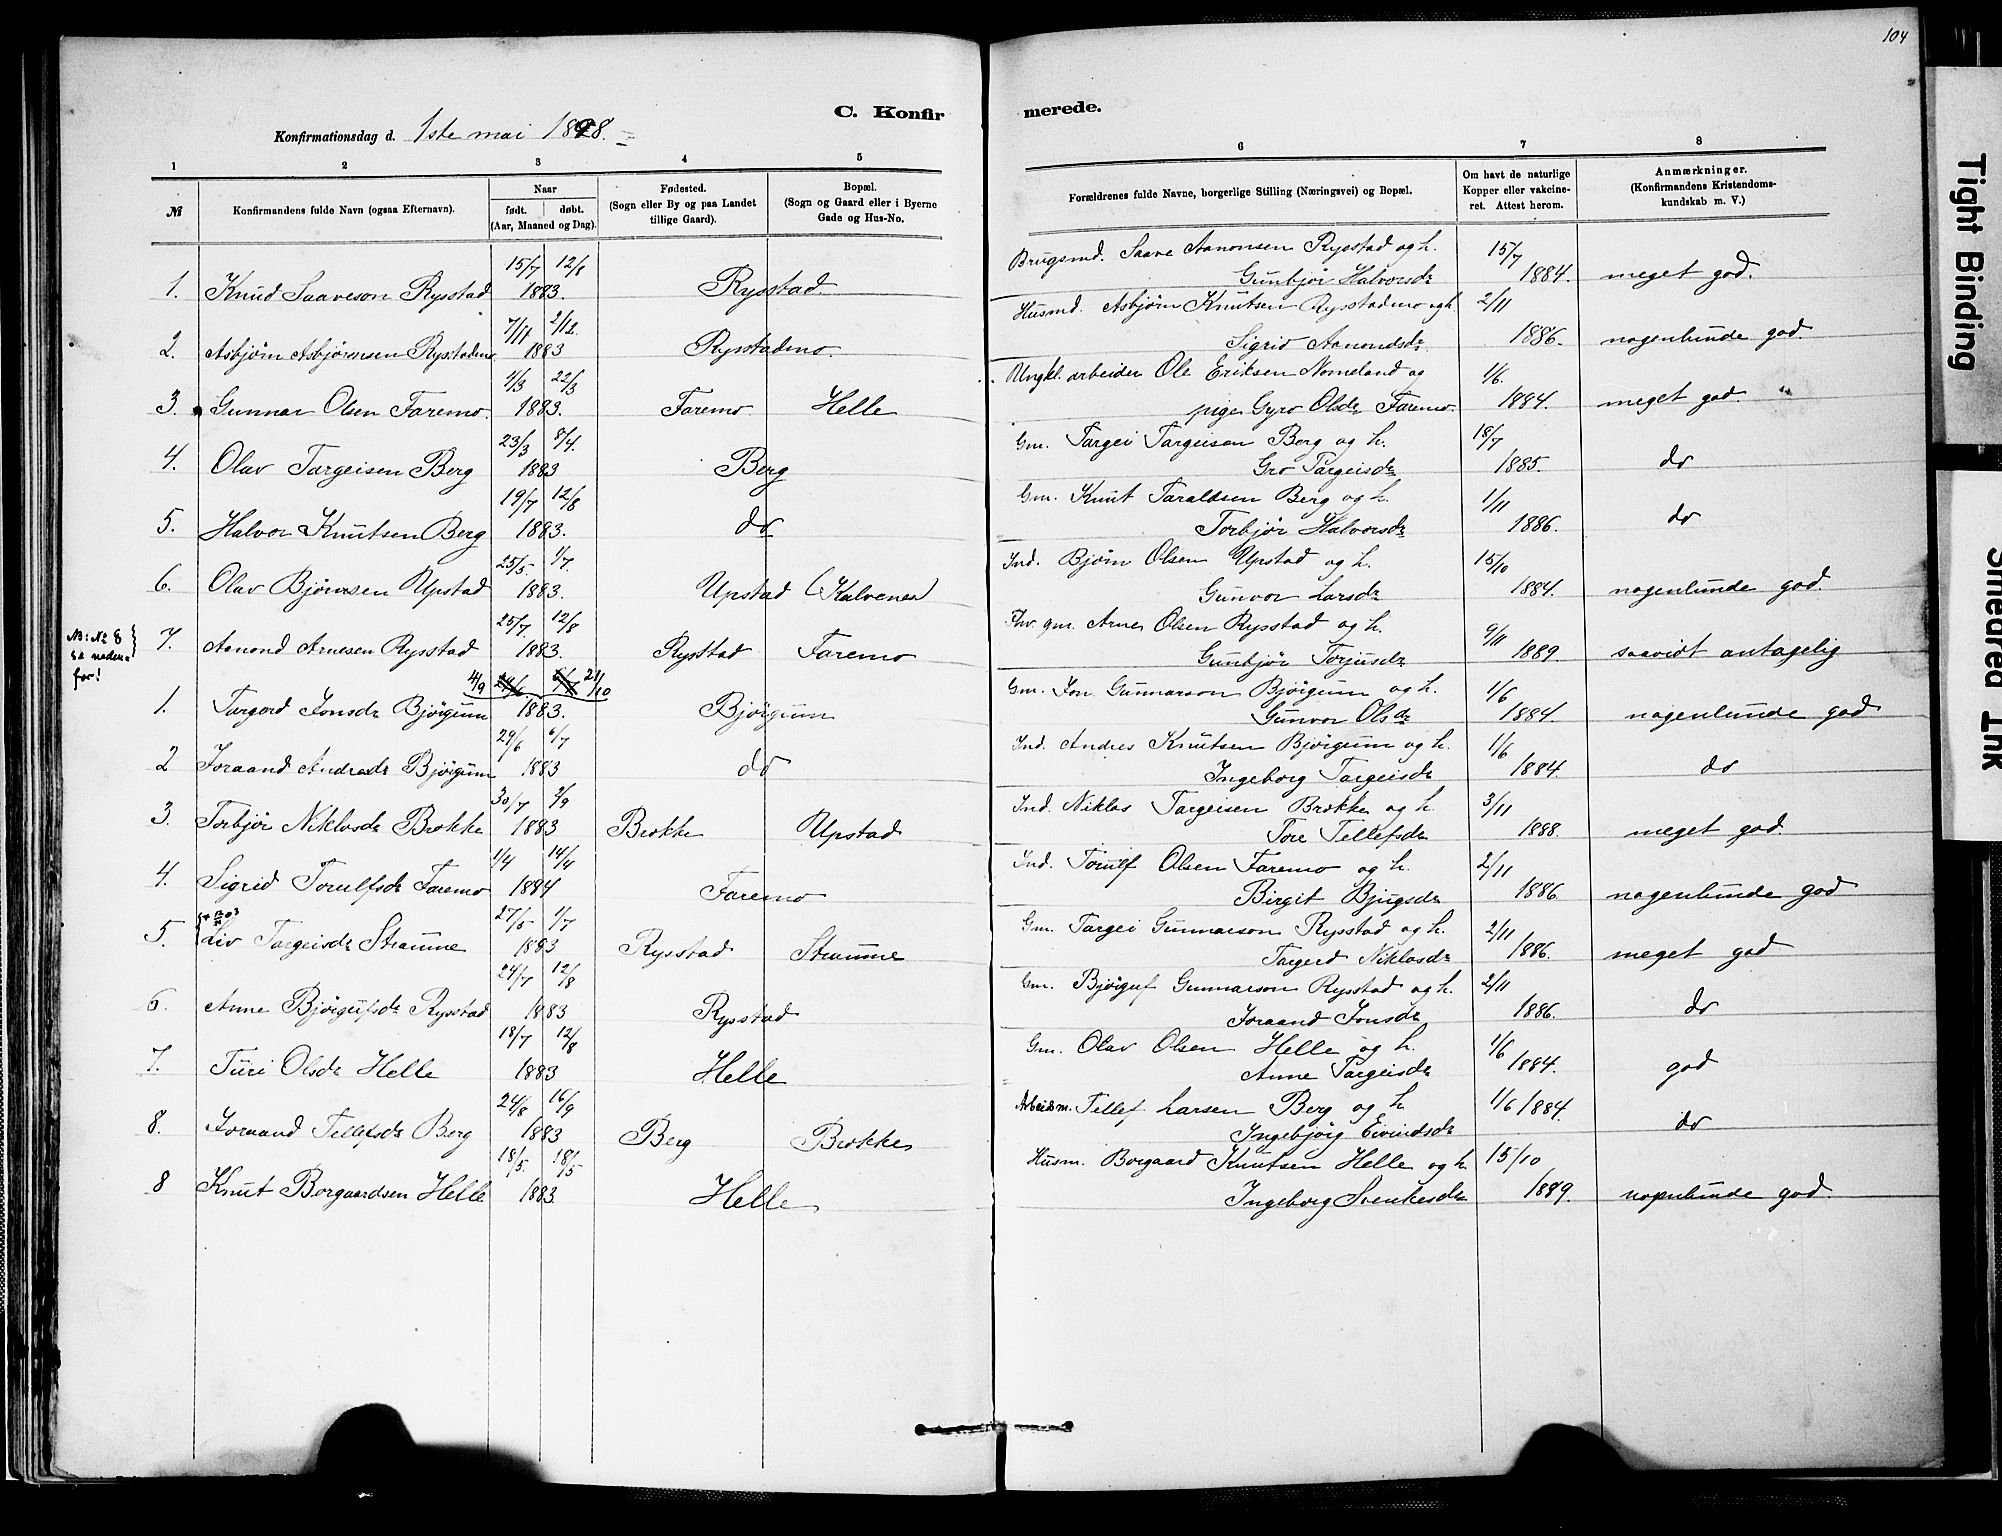 104
C. Konfirmerede.
Konfirmationsdag d. 1ste mai 1898.
1 2 3 4 5 6 7 8
№ Konfirmandens fulde Navn (ogsaa Efternavn). Naar født. døbt. (Aar, Maaned og Dag). Fødested. (Sogn eller By og paa Landet tillige Gaard). Bopæl. (Sogn og Gaard eller i Byerne Gade og Hus-No. Forældrenes fulde Navne, borgerlige Stilling (Næringsvei) og Bopæl. Om havt de naturlige Kopper eller vakcineret. Attest herom. Anmærkninger. (Konfirmandens Kristendomskundskab m. V.)
1. Knud Saaveson Rysstad 15/7 12/8 1883. Rysstad Brugsmd. Saave Aanonsen Rysstad og h. Gunbjør Halvorsdr 15/7 1884. meget god.
2. Asbjørn Asbjørnsen Rysstadmo 7/11 2/12 1883 Rysstadmo. Husmd. Asbjørn Knutsen Rysstadmo og h. Sigrid Aanondsdr 2/11 1886. nogenlunde god.
3. Gunnar Olsen Faremo. 4/3 22/3 1883. Faremo Helle Ungkl. arbeider Ole Eriksen Nomeland og pige Gyro Olsdr Faremo. 1/6. 1884. meget god.
4. Olav Targeisen Berg 23/3 8/4. 1883 Berg Gm. Targei Targeisen Berg og h. Gro Targeisdr 18/7 1885. do
5. Halvor Knutsen Berg 19/7 12/8 1883. do Gm. Knut Taraldsen Berg og h. Torbjør Halvorsdr 1/11 1886. do
6. Olav Bjørnsen Upstad 25/5. 1/7. 1883. Upstad (Kalvenes Ind. Bjørn Olsen Upstad og h. Gunvor Larsdr 15/10 1884. nogenlunde god.
NB: № 8 se nedenfor!
7. Aanond Arnesen Rysstad 25/7 12/8 1883. Rysstad Faremo Fhv. gm. Arne Olsen Rysstad og h. Gunbjør Torjusdr 9/11 1889. saavidt antagelig
1. Targerd Jonsdr Bjørgum 4/9 29/6 6/7 21/10 1883. Bjørgum Gm. Jon Gunnarson Bjørgum og h. Gunvor Olsdr 1/6 1884. nogenlunde god
2 Joraand Andresdr Bjørgum 29/6 6/7 1883 do Ind. Andres Knutsen Bjørgum og h. Ingeborg Targeisdr 1/6 1884. do
3. Torbjør Niklosdr Brokke 30/7 2/9 1883 Brokke Upstad Ind. Niklos Targeisen Brokke og h. Tore Tellefsdr 3/11 1888. meget god
4. Sigrid Torulfsdr Faremo 1/4 14/4 1884 Faremo Ind. Torulf Olsen Faremo og h. Birgit Bjugsdr 2/11 1886. nogenlunde god
5. Liv Targeisdr Straume 27/5 1/7 1883 Rysstad Straume Gm. Targei Gunnarson Rysstad og h. Targerd Niklosdr 2/11 1886. meget god
6. Anne Bjørgufsdr Rysstad 24/7 12/8 1883 Rysstad Gm. Bjørguf Gunnarson Rysstad og h. Joraand Jonsdr 2/11 1886. do
7. Turi Olsdr Helle 18/7 12/8 1883 Helle Gm. Olav Olsen Helle og h. Anne Targeisdr 1/6 1884. god
8. Joraand Tellefsdr Berg 24/8 16/9 1883 Berg Brokke Arbeidsm. Tellef Larsen Berg og h. Ingebjørg Eivindsdr 1/6 1884. do
8 Knut Borgaardsen Helle 18/5. 18/5 1883 Helle Husm. Borgaard Knutsen Helle og h. Ingeborg Svenkesdr 15/10 1889. nogenlunde god.
Tight Binding
Smeared Ink